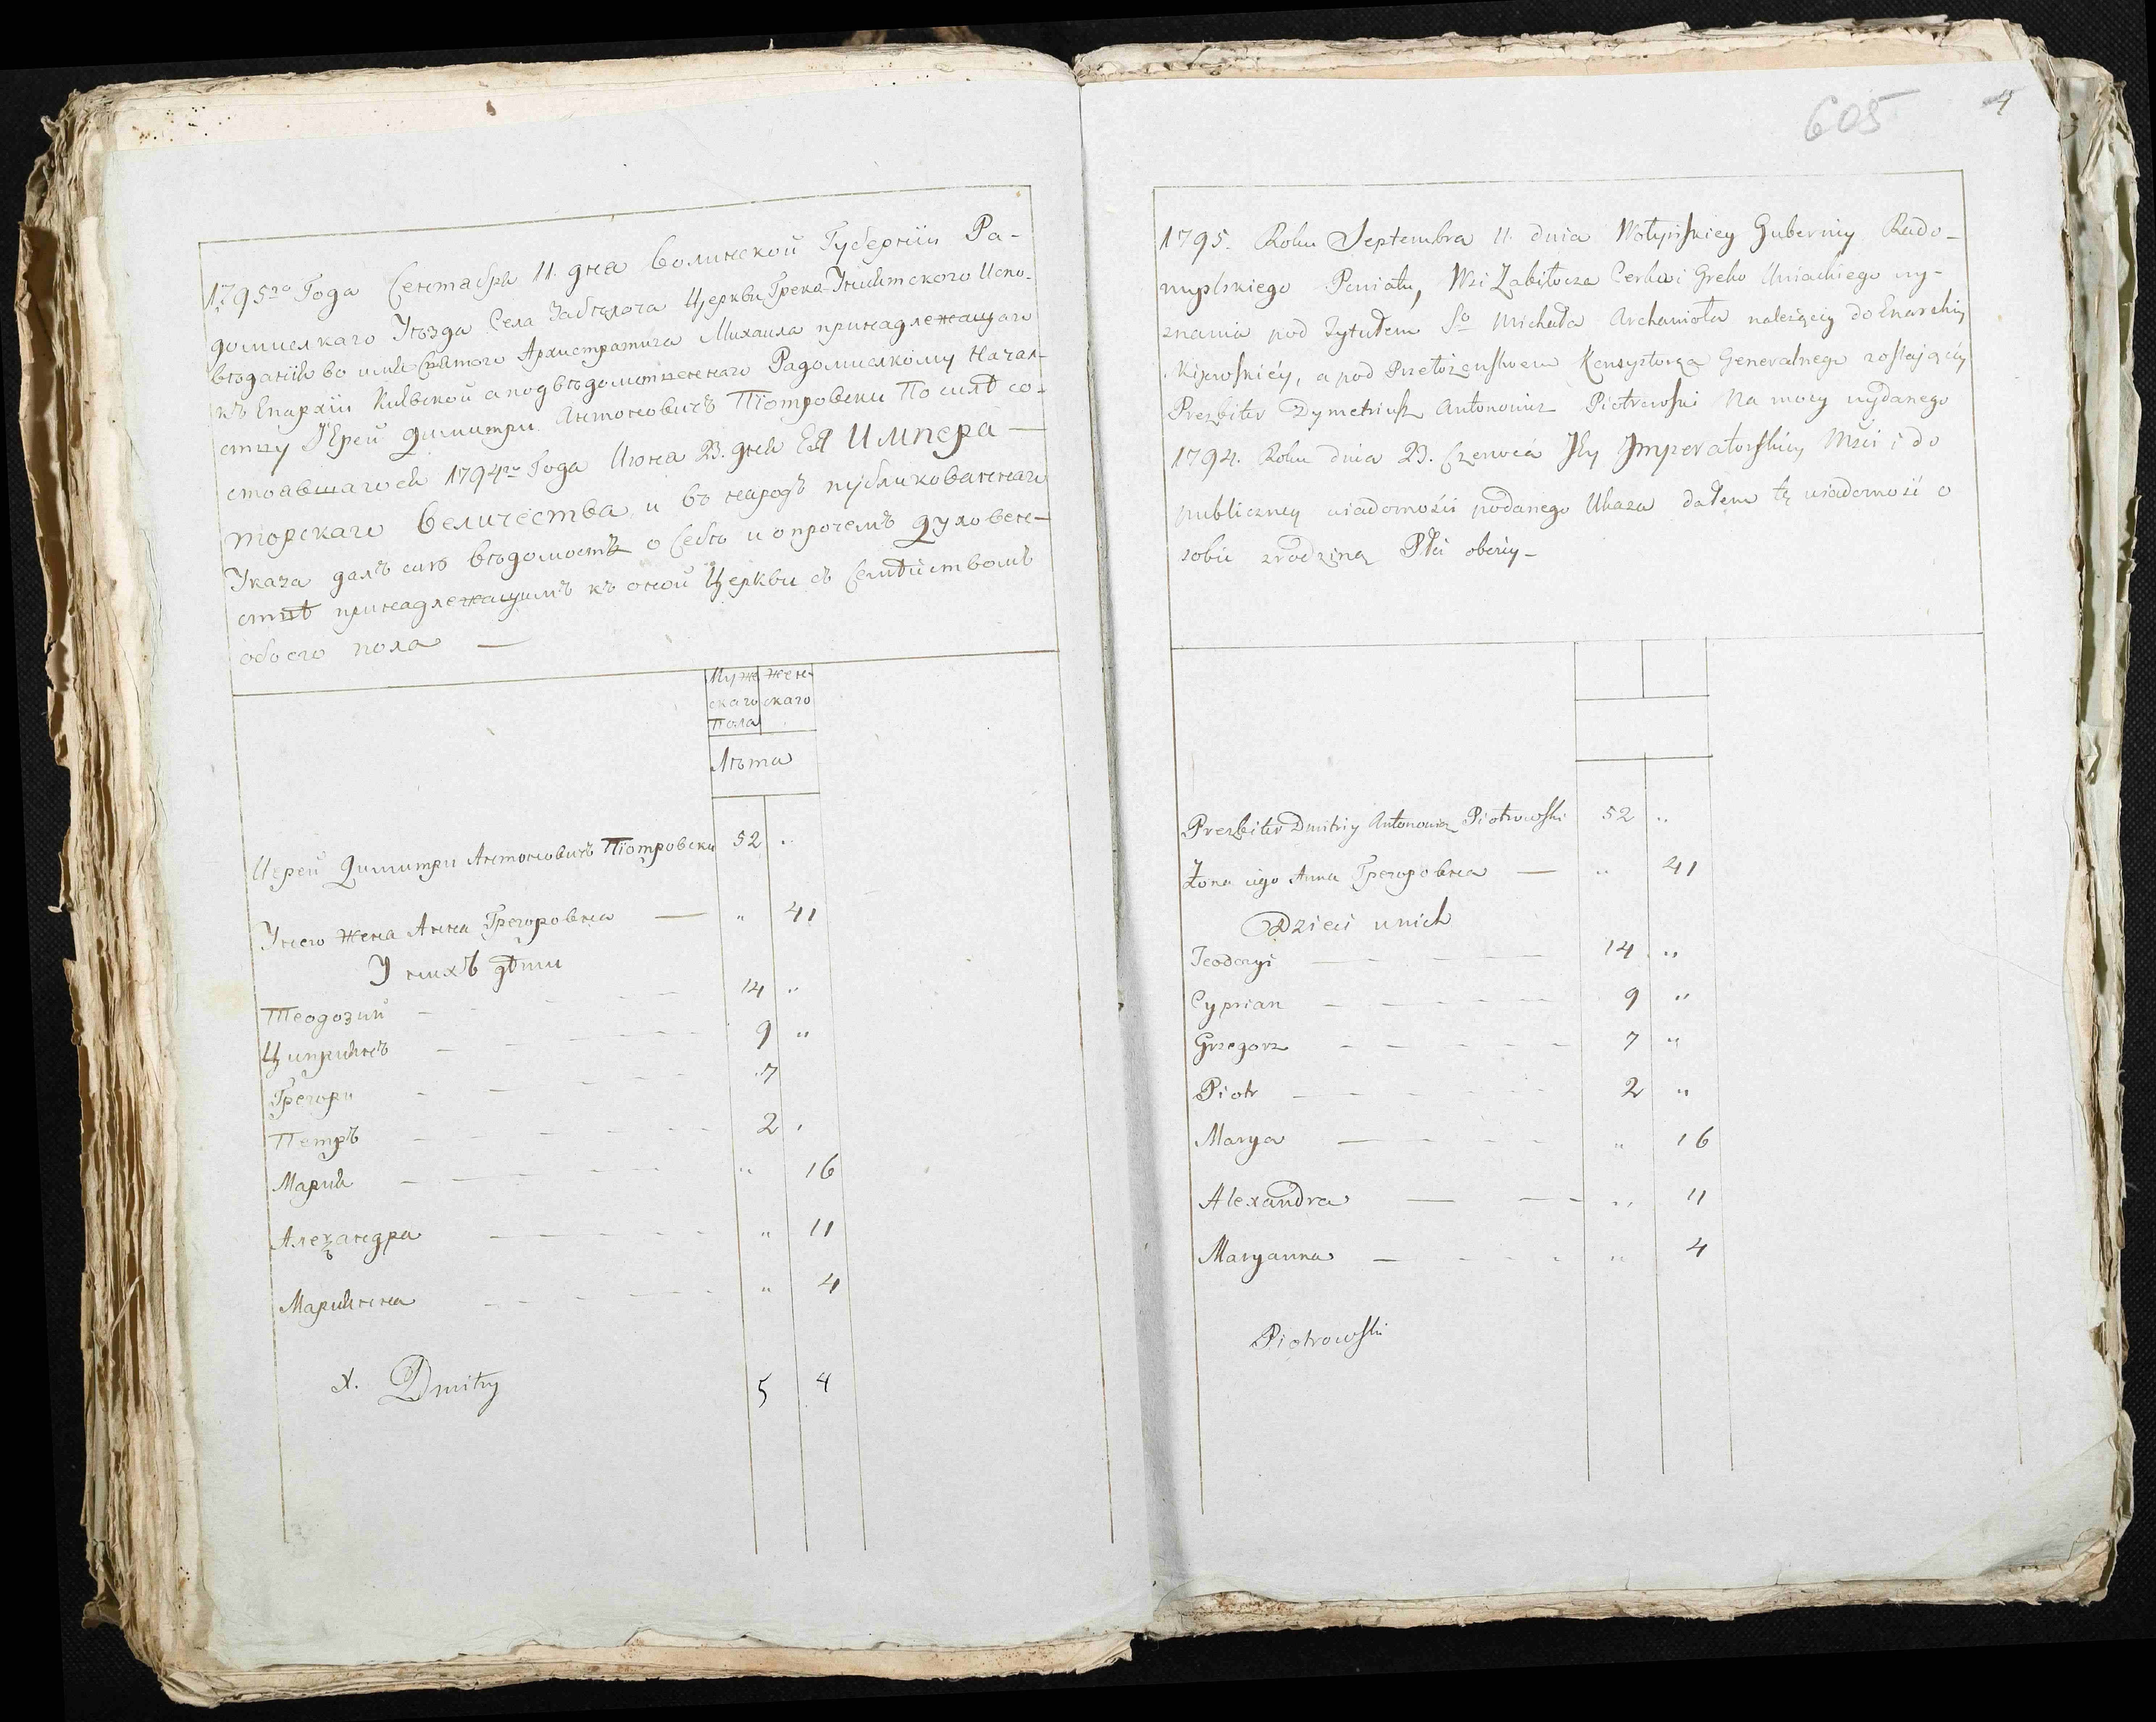 1795го Года Сентабря 11. дня Волинской Губернїи Ра-
домислкаго Уѣзда Села Забѣлоча Церкви Греко-Унїятского Испо-
вѣданїя во имя Святого Архистратига Михаила принадлежащаго
къ Епархїи Киевской а подвѣдомственнаго Радомислкому Начал-
ству Їерей Димитри Антоновичъ Пїотровски По силѣ со-
стоявшагося 1794го Года Июня 23. дня Ея Импера-
торскаго Величества и въ народъ публикованнаго
Указа далъ сию вѣдомость о Себѣ и о прочемъ Духовен-
ствѣ принадлежащимъ къ оной Церкви съ Семѣйствомъ
обоего пола —
Муже Жен-
скаго скаго
Пола
Лѣта
Иерей Димитри Антоновичъ Пїотровски 52 "
У него жена Анна Грегоровна — " 41
У нихъ дѣти
Теодозий 14 "
Циприянъ 9 "
Грегори 7
Петръ 2 "
Мария " 16
Алеѯандра " 11
Марианна " 4
X. Dmitry 5 4
605 4
1795. Roku Septembra 11. dnia Wołyńskiey Guberniy Rado-
myslskiego Powiatu, Wsi Zabiłocza Cerkwi Greko Uniackiego wy-
znania pod Tytułem So Michała Archanioła należącey do Eparchiy
Kijowskiéy, a pod Przełożenstwem Konsystorza Generalnego zostającéy
Prezbiter Dymetriusz Antonowicz Piotrowski Na mocy wydanego
1794. Roku dnia 23. Czerwca Jey Jmperatorskiey Mści i do
publiczney wiadomości podanego Ukazu dałem tę wiadomość o
sobie z rodziną Płci oboiey-
Prezbiter Dmitriy Antonowicz Piotrowski 52 "
Żona iego Anna Грегоровна — " 41
Dzieci u nich
Teodozyi 14 "
Cyprian 9 "
Grzegorz 7 "
Piotr 2 "
Marya " 16
Alexandra " 11
Maryanna " 4
Piotrowski